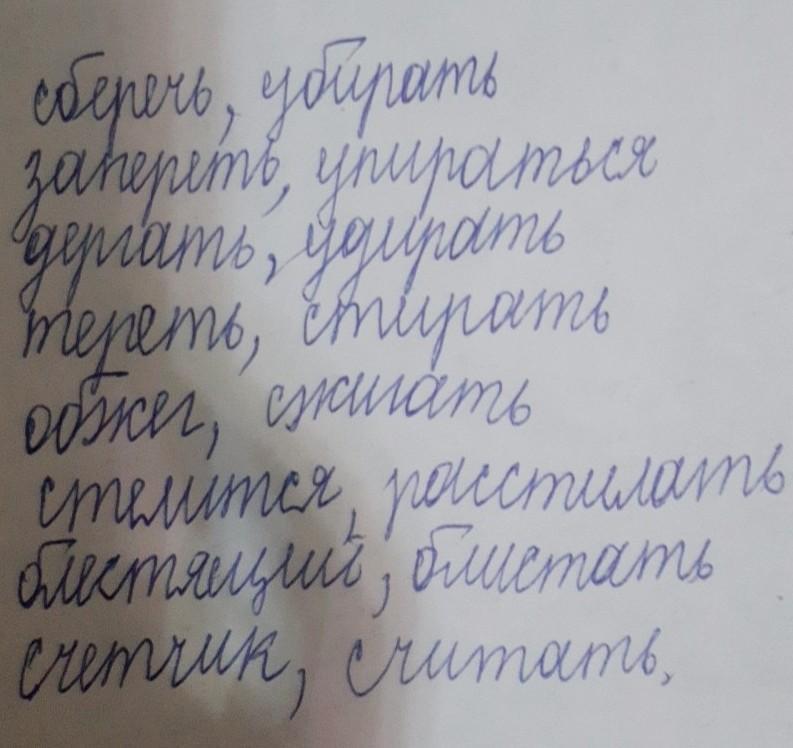 сберечь, убирать
запереть, упираться
дергать, удирать
тереть, стирать
обжег, сжигать
стелится, расстилать
блестящий, блистать
счетчик, считать.